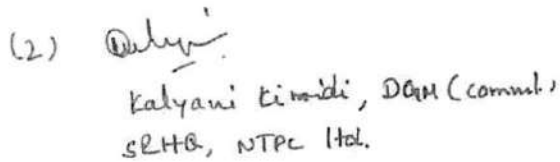 (2)
Kalyani Kimidi, DGM (comml.,
SRHQ, NTPC ltd.